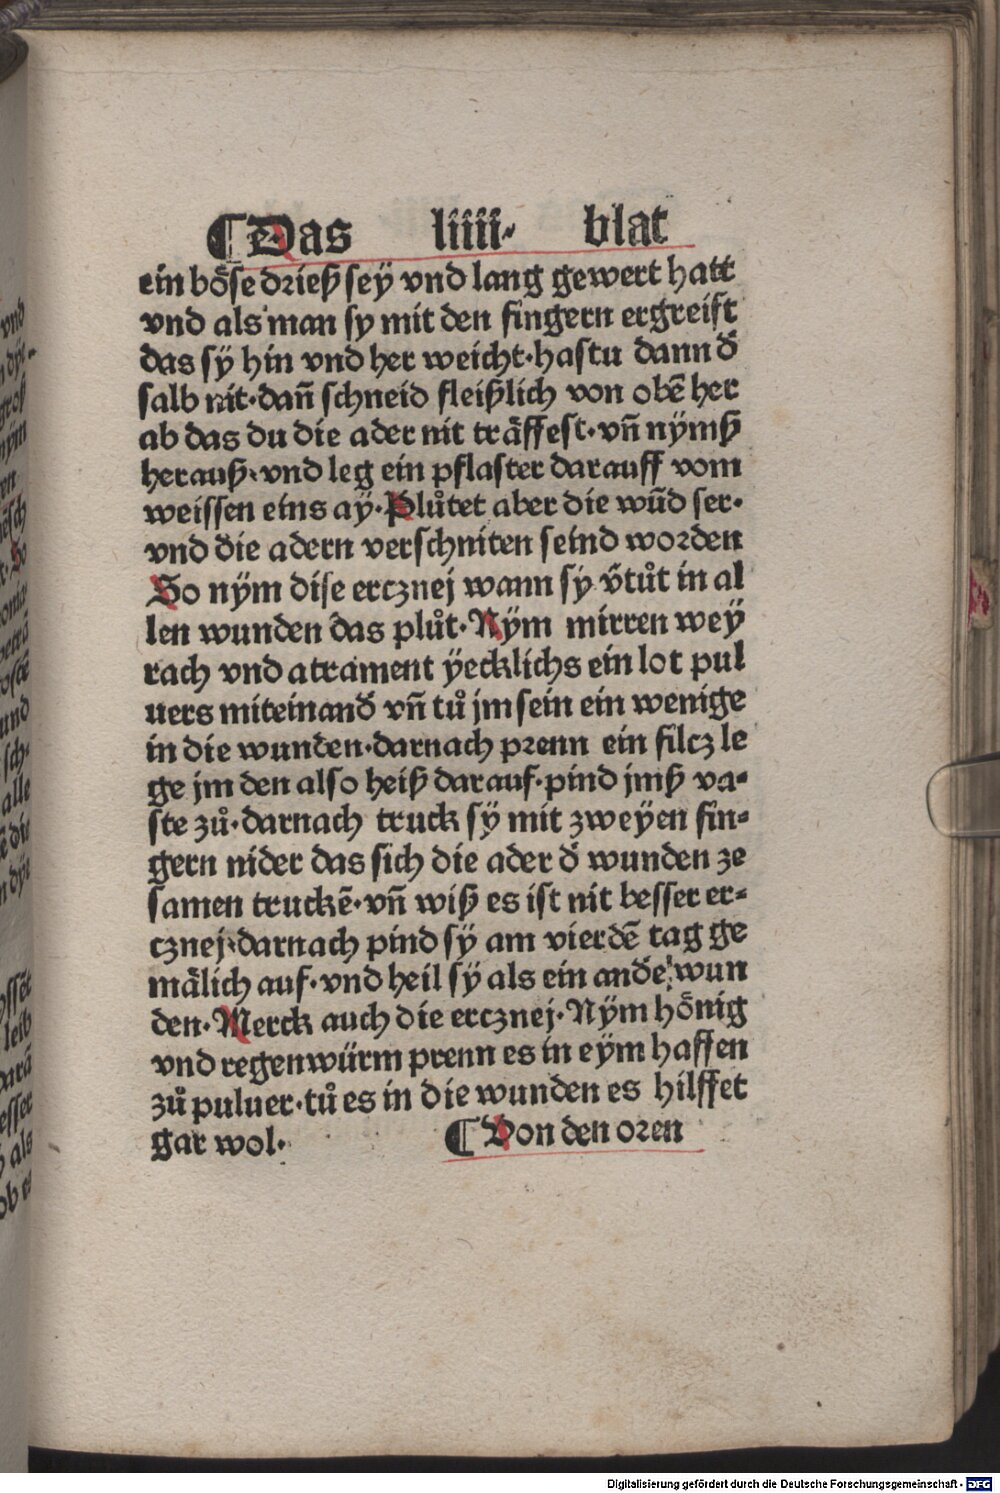 ¶Das liiii· blat
ein böse drieß sey vnd lang gewert hatt
vnd als man sy mit den fingern ergreift
das sÿ hin vnd her weicht·hastu dann đ
salb nit·dañ schneid fleißlich von obē her
ab das du die ader nit träffest·vñ nÿmß
herauß·vnd leg ein pflaster darauff vom
weissen eins aÿ·Plůtet aber die wūd ser·
vnd die adern verschniten seind worden
So nÿm dise ercznej wann sy v̄tůt in al
len wunden das plůt·Nÿm mirren weÿ
rach vnd atrament ÿecklichs ein lot pul
uers miteinanđ vñ tů jm sein ein wenige
in die wunden·darnach prenn ein filcz le
ge jm den also heiß darauf·pind jmß va-
ste zů·darnach truck sÿ mit zweÿen fin-
gern nider das sich die ader đ wunden ze
samen truckē·vñ wiß es ist nit besser er-
cznej·darnach pind sÿ am vierdē tag ge
mälich auf·vnd heil sÿ als ein anđe wun
den·Merck auch die ercznej·Nÿm hönig
vnd regenwürm prenn es in eÿm haffen
zů puluer·tů es in die wunden es hilffet
gar wol· ¶Von den oren
Digitalisierung gefördert durch die Deutsche Forschungsgemeinschaft - DFG